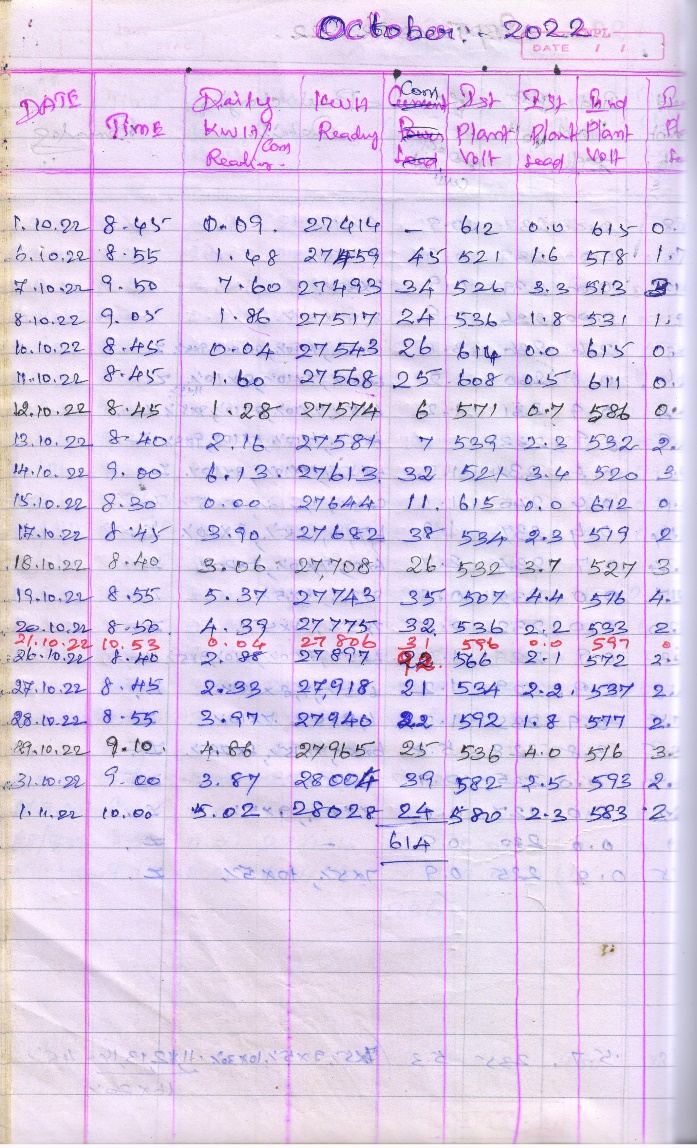 October. - 2022
DATE / /
DATE Time Daily KWH/Com Reading KWH Reading Com Current Power Lead Ist Plant Volt Ist Plant Lead IInd Plant Volt
1.10.22 8.45 0.09. 27414 - 612 0.0 615 0.
6.10.22 8.55 1.48 27459 45 521 1.6 578 1.
7.10.22 9.50 7.60 27493 34 526 3.3 513
8.10.22 9.05 1.86 27517 24 536 1.8 531 1.
10.10.22 8.45 0.04 27543 26 614 0.0 615 0
11.10.22 8.45 1.60 27568 25 608 0.5 611 0.
12.10.22 8.45 1.28 27574 6 571 0.7 586 0.
13.10.22 8.40 2.16 27581 7 539 2.3 532 2.
14.10.22 9.00 6.13. 27613. 32 521 3.4 520 3
15.10.22 8.30 0.00 27644 11. 615 0.0 612 0.
17.10.22 8.45 3.90 27682 38 534 2.3 519 2
18.10.22 8.40 3.06 27,708 26 532 3.7 527 3.
19.10.22 8.55 5.37 27743 35 507 4.4 516 4.
20.10.22 8.50 4.39 27775 32 536 2.2 533 2.
21.10.22 10.53 0.04 27806 31 596 0.0 597 0
26.10.22 8.40 2.88 27897 92. 566 2.1 572 2.
27.10.22 8.45 2.33 27,918 21 534 2.2 537 2.
28.10.22 8.55 3.97 27940 22 592 1.8 577 2.
29.10.22 9.10. 4.86 27965 25 536 4.0 516 3.
31.10.22 9.00 3.87 28004 39 582 2.5 593 2.
1.11.22 10.00 5.02. 28028 24 580 2.3 583 2
614